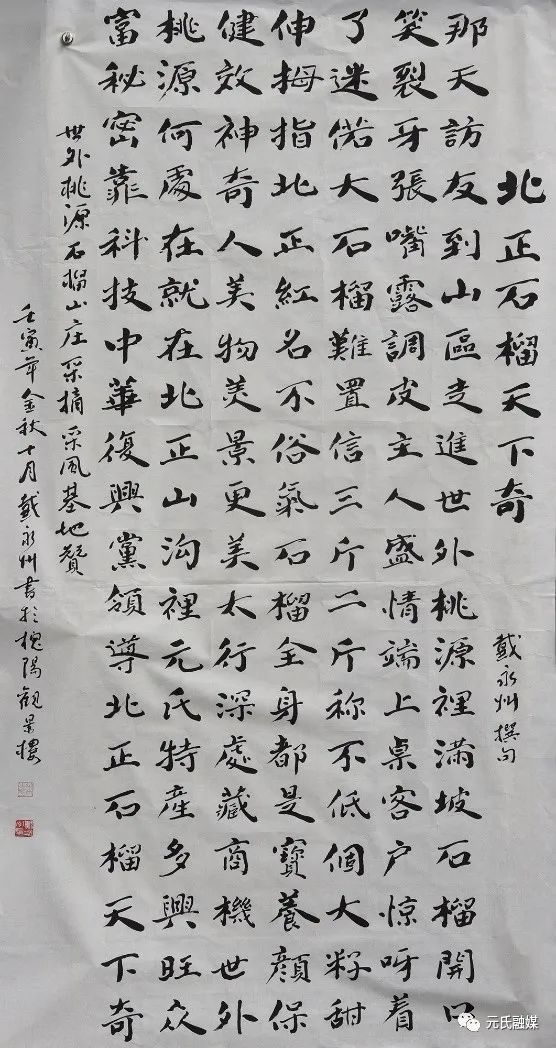 北正石榴天下奇
戴永州撰句
那天訪友到山區走進世外桃源裡滿坡石榴開口
笑裂牙張嘴露調皮主人盛情端上桌客户惊呀着
了迷偌大石榴難置信三斤二斤称不低個大籽甜
伸拇指北正紅名不俗氣石榴全身都是寶養顏保
健效神奇人美物美景更美太行深處藏商機世外
桃源何處在就在北正山沟裡元氏特產多興旺众
富秘密靠科技中華復興黨領導北正石榴天下奇
世外桃源石榴山庄采摘采風基地贊
壬寅年金秋十月戴永州書於槐陽觀景樓
元氏融媒